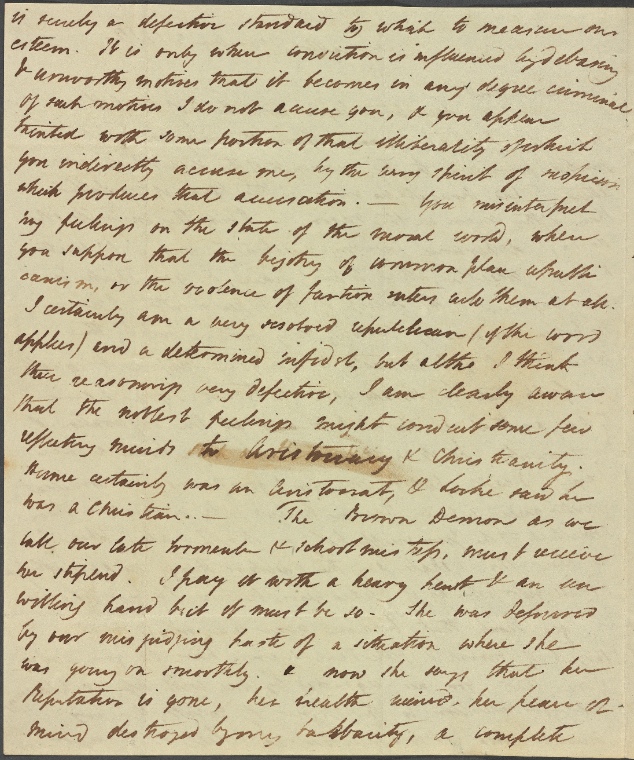 is surely a defective standard by which to measure our
esteem. It is only when conviction is influenced by debasing
& unworthy motives that it becomes in any degree criminal
of such motives I do not accuse you, & you appear
tainted with some portion of that illiberality of which
you indirectly accuse me, by the very spirit of suspicion
which produces that accusation. — You misinterpret
my feelings on the state of the moral world, when
you suppose that the bigotry of common place republi
canism, or the violence of faction enters into them at all.
I certainly am a very resolved republican (if the word
applies) and a determined infidel, but altho I think
their reasonings very defective, I am clearly aware
that the noblest feelings might conduct some few
reflecting minds to Aristocracy & Christianity.
Hume certainly was an Aristocrat, & Locke said he
was a Christian. — The Brown Demon as we
call our late tormentor & schoolmistress, must receive
her stipend. I pay it with a heavy heart & an un
willing hand but it must be so. She was deprived
by our misjudging haste of a situation where she
was going on smoothly. & now she says that her
Reputation is gone, her health ruined. her peace of
mind destroyed by my barbarity, a complete